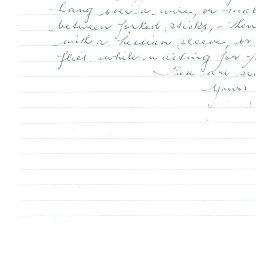 hang over a wire, or
between forked sticks, - then
with a hessian sleeve, or
flies while waiting for
These are
Yours